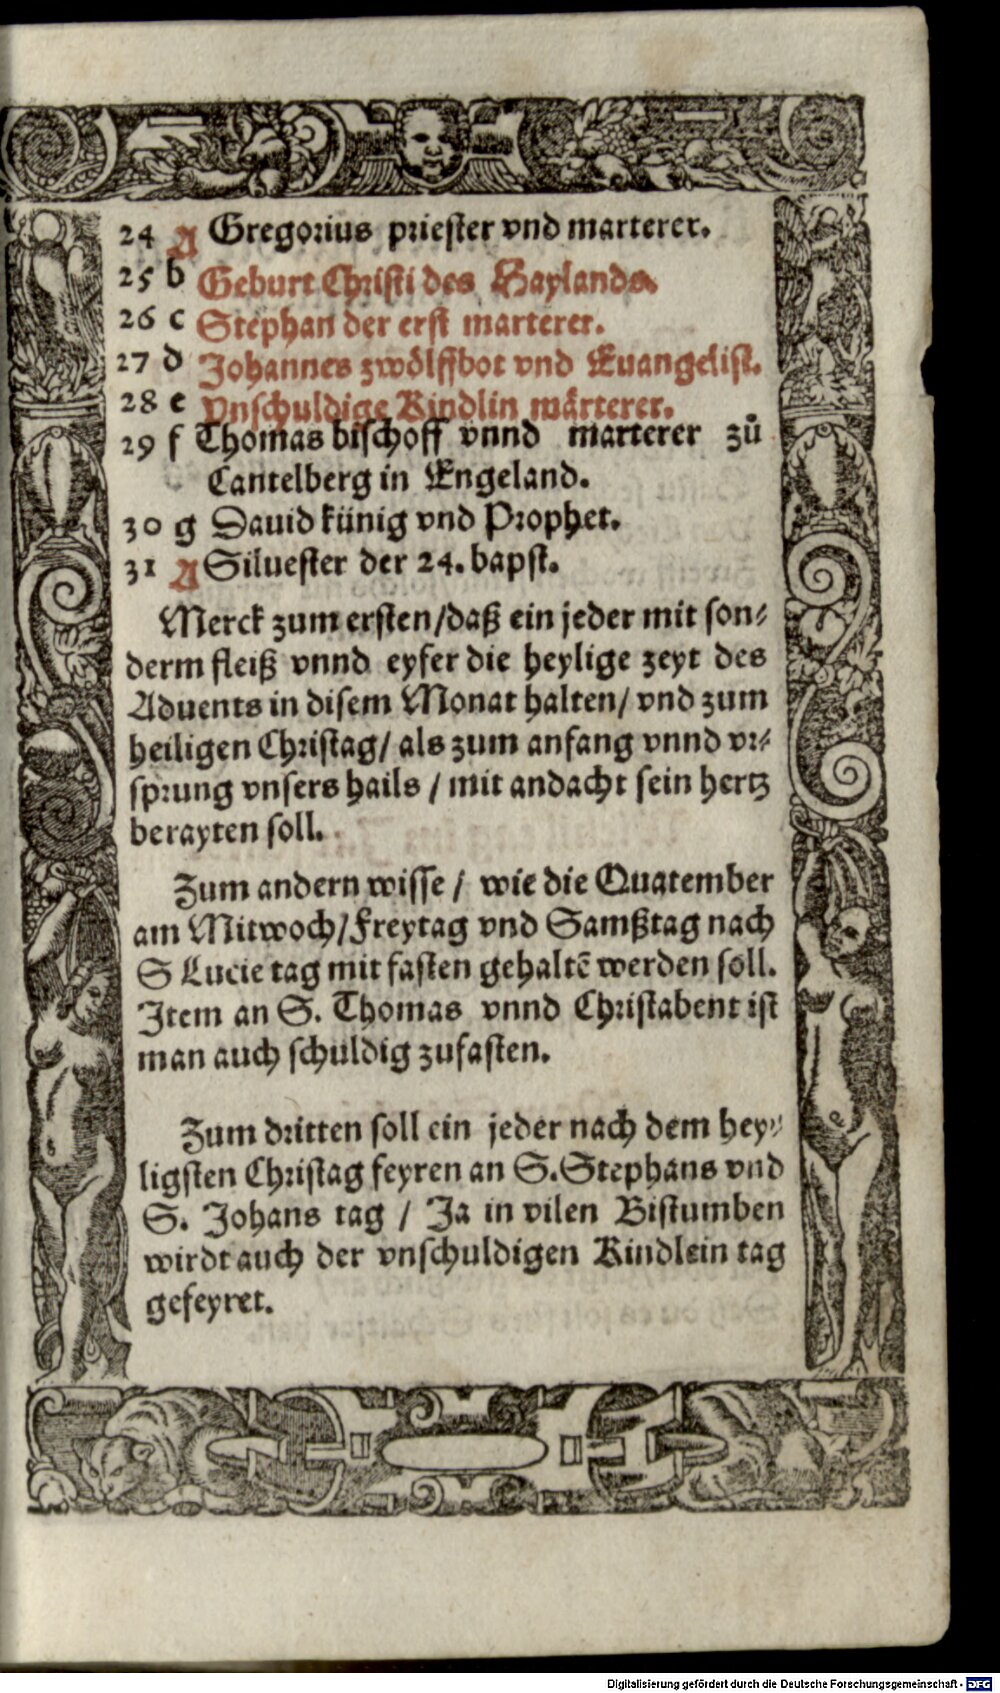 24 A Gregorius priester vnd marterer.
25 b Geburt Christi des Haylands.
26 c Stephan der erst marterer.
27 d Johannes zwölffbot vnd Euangelist.
28 e Vnschuldige Kindlin märterer.
29 f Thomas bischoff vnnd marterer zů
Cantelberg in Engeland.
30 g Dauid künig vnd Prophet.
31 A Siluester der 24. bapst.
Merck zum ersten/daß ein jeder mit son⸗
derm fleiß vnnd eyfer die heylige zeyt des
Aduents in disem Monat halten/ vnd zum
heiligen Christag/ als zum anfang vnnd vr⸗
sprung vnsers hails / mit andacht sein hertz
berayten soll.
Zum andern wisse / wie die Quatember
am Mitwoch/Freytag vnd Samßtag nach
S Lucie tag mit fasten gehaltē werden soll.
Item an S. Thomas vnnd Christabent ist
man auch schuldig zufasten.
Zum dritten soll ein jeder nach dem hey⸗
ligsten Christag feyren an S.Stephans vnd
S. Johans tag / Ja in vilen Bistumben
wirdt auch der vnschuldigen Kindlein tag
gefeyret.
Digitalisierung gefördert durch die Deutsche Forschungsgemeinschaft - DFG